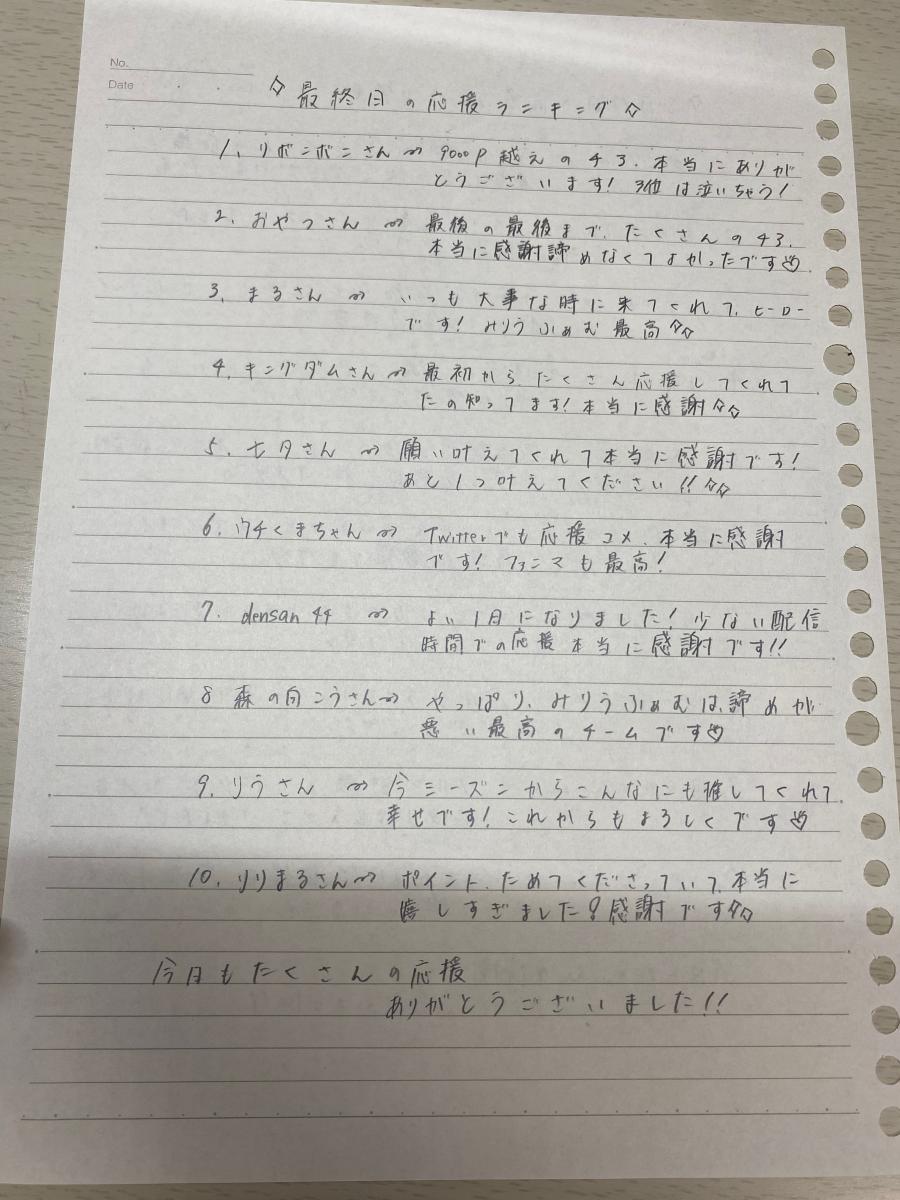 No.
Date
☆最終日の応援ランキング☆
1. リボンボンさん⇝ 9000P越えのギフ、本当にありが
とうございます! 3位は泣いちゃう!
2. おやつさん ⇝ 最後の最後まで、たくさんのギフ、
本当に感謝諦めなくてよかったです♡
3. まるさん ⇝ いつも大事な時に来てくれて、ヒーロー
です! みりうふぁむ最高☆☆
4. キングダムさん⇝ 最初から、たくさん応援してくれて
たの知ってます! 本当に感謝☆☆
5. 七夕さん ⇝ 願い叶えてくれて本当に感謝です!
あと1つ叶えてください!! ☆☆
6. ウチくまちゃん⇝ Twitterでも応援コメ、本当に感謝
です! ファンマも最高!
7. densan 44 ⇝ よい1日になりました! 少ない配信
時間での応援本当に感謝です!!
8 森の向こうさん⇝ やっぱり、みりうふぁむは、諦めが
悪い最高のチームです♡
9. りうさん ⇝ 今シーズンからこんなにも推してくれて
幸せです! これからもよろしくです♡
10. りりまるさん⇝ ポイント、ためてくださっていて、本当に
嬉しすぎました? 感謝です☆☆
今日もたくさんの応援
ありがとうございました!!